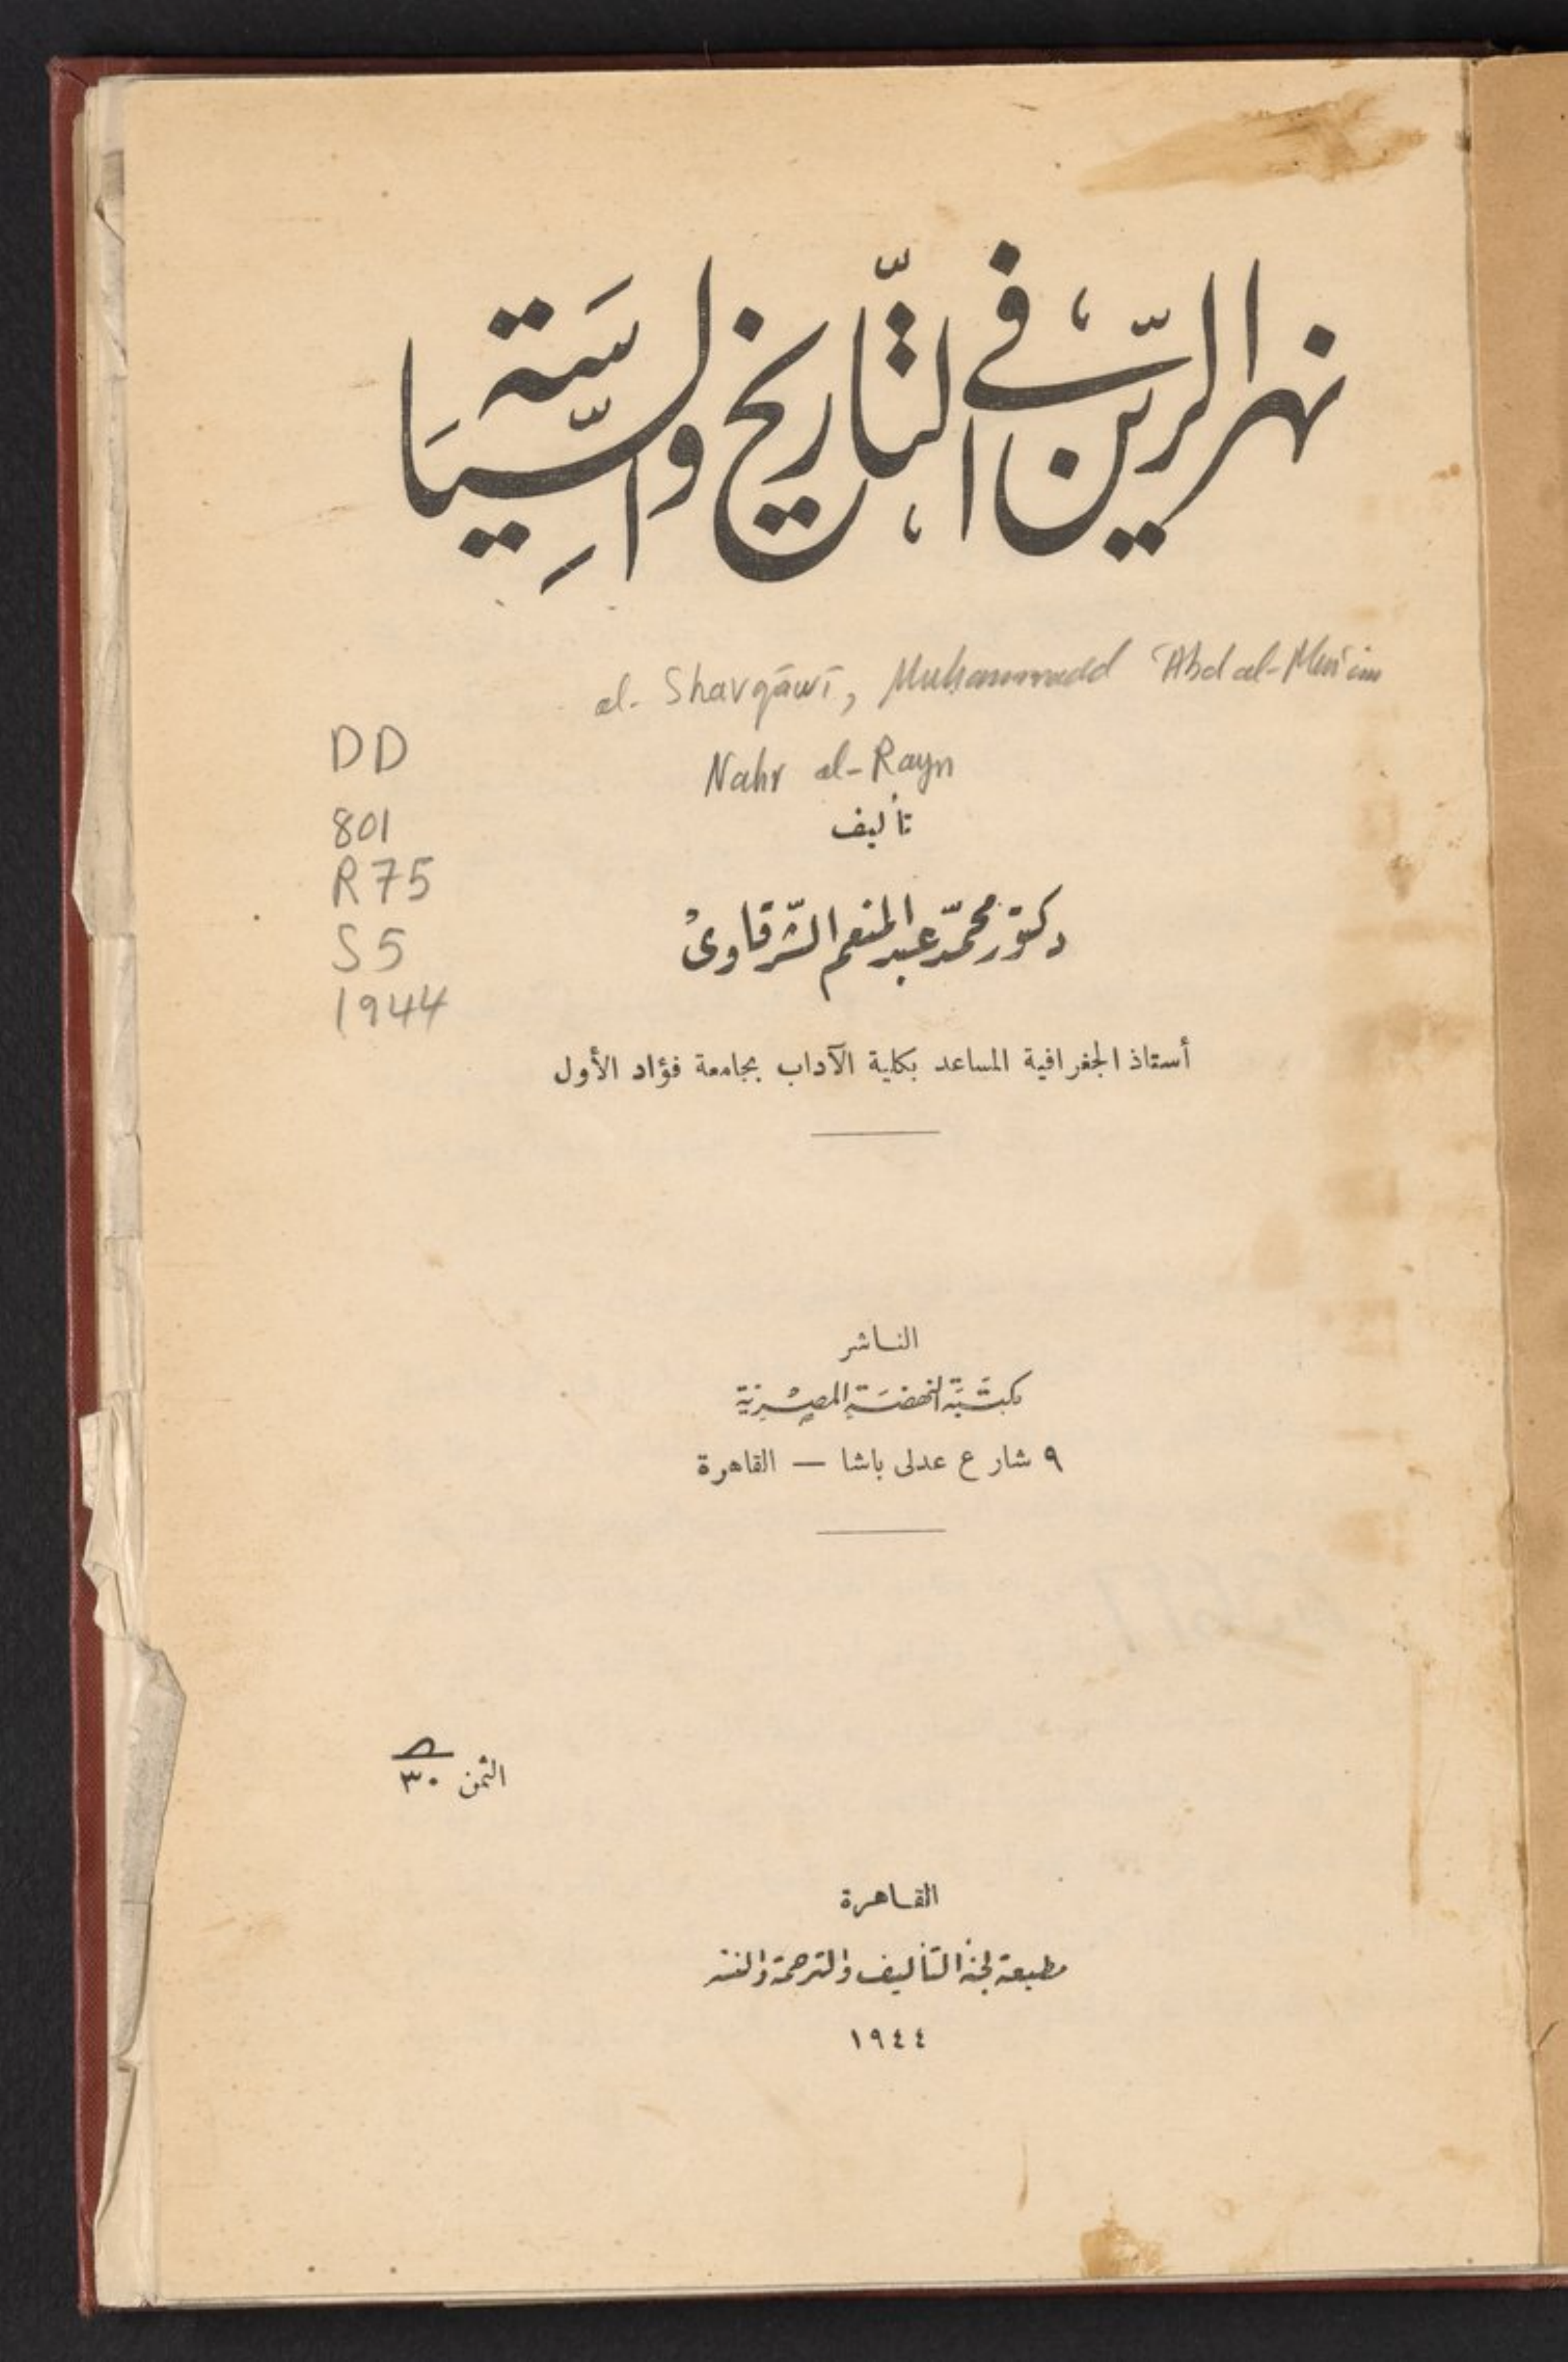 نهر الرين في التاريخ والسياسة
al-Sharqāwī, Muḥammadd ʿAbd al-Munʿim
Nahr al-Rayn
DD
801
R75
S5
1944
تأليف
دكتور محمد عبد المنعم الشرقاوى
أستاذ الجغرافية المساعد بكلية الآداب بجامعة فؤاد الأول
الناشر
مكتبة النهضة المصرية
٩ شارع عدلى باشا — القاهرة
الثمن ٣٠
القاهرة
مطبعة لجنة التأليف والترجمة والنشر
١٩٤٤